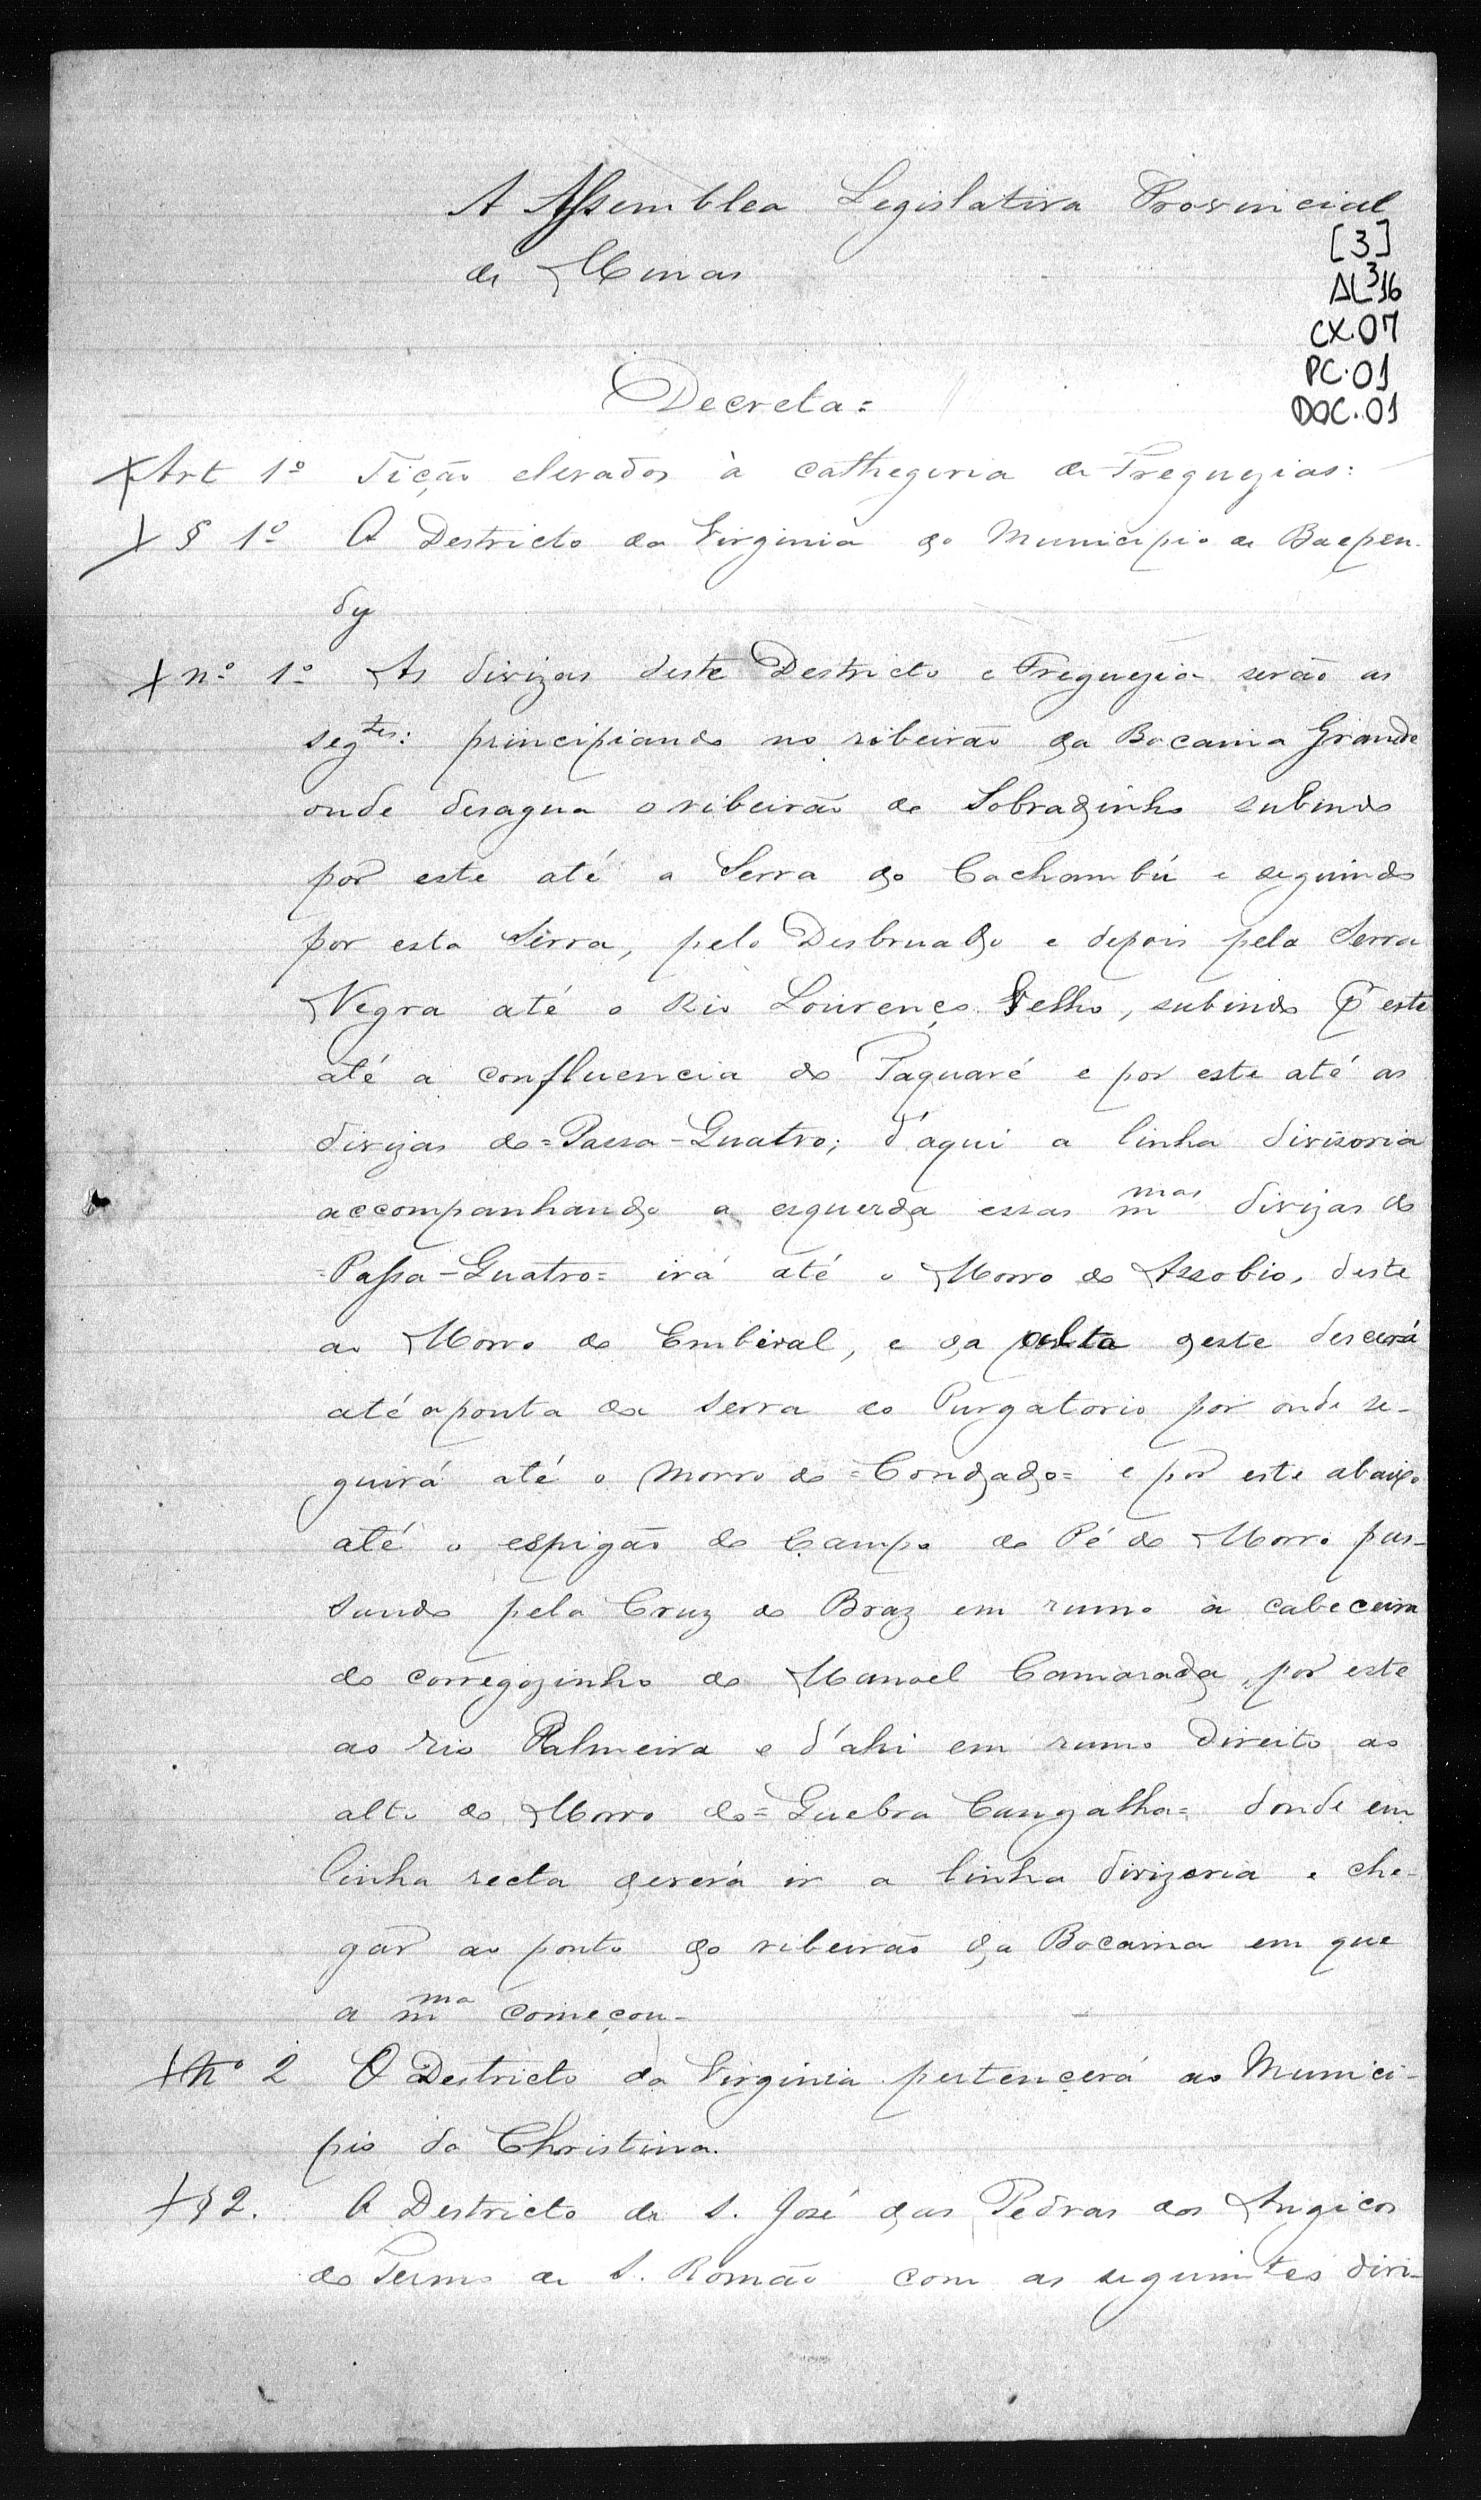 A Assemblea Legislativa Provincial
de Minas
[3]
AL³16
CX.07
PC.01
DOC.01
Decreta=
Art 1º Ficão elevados à cathegoria de Freguezias:
§ 1º O Destricto da Virginia do Municipio de Baepen-
dy
nº 1º As divizas deste Destricto e Freguezia serão as
segtes: principiando no ribeirão da Bocaina Grande
onde desagua o ribeirão do Sobradinho subindo
por este até a Serra do Cachambú e seguindo
por esta Serra, pelo Desbruado e depois pela Serra
Negra até o Rio Lourenço Velho, subindo pr este
até a confluencia do Taquaré e por este até as
divizas do=Passa-Quatro; d'aqui a linha divisoria
accompanhando a esquerda essas mmas divizas do
=Passa-Quatro= irá até o Morro do Assobio, deste
ao Morro do Embiral, e da volta deste descerá
até a ponta da serra do Purgatorio por onde se-
guirá até o morro do =Condado= e por este abaixo
até o espigão do Campo do Pé do Morro pas-
sando pela Cruz do Braz em rumo à cabeceira
do corregozinho do Manoel Camarada, por este
ao rio Palmeira e d'ahi em rumo direito ao
alto do Morro do=Quebra Cangalha= donde em
linha recta deverá ir a linha divizoria e che-
gar ao ponto do ribeirão da Bocaina em que
a mma começou-
nº 2 O Destricto da Virginia pertencerá ao Munici-
pio da Christina.
§ 2. O Destricto de S. José das Pedras dos Angicos
do Termo de S. Romão com as seguintes divi-